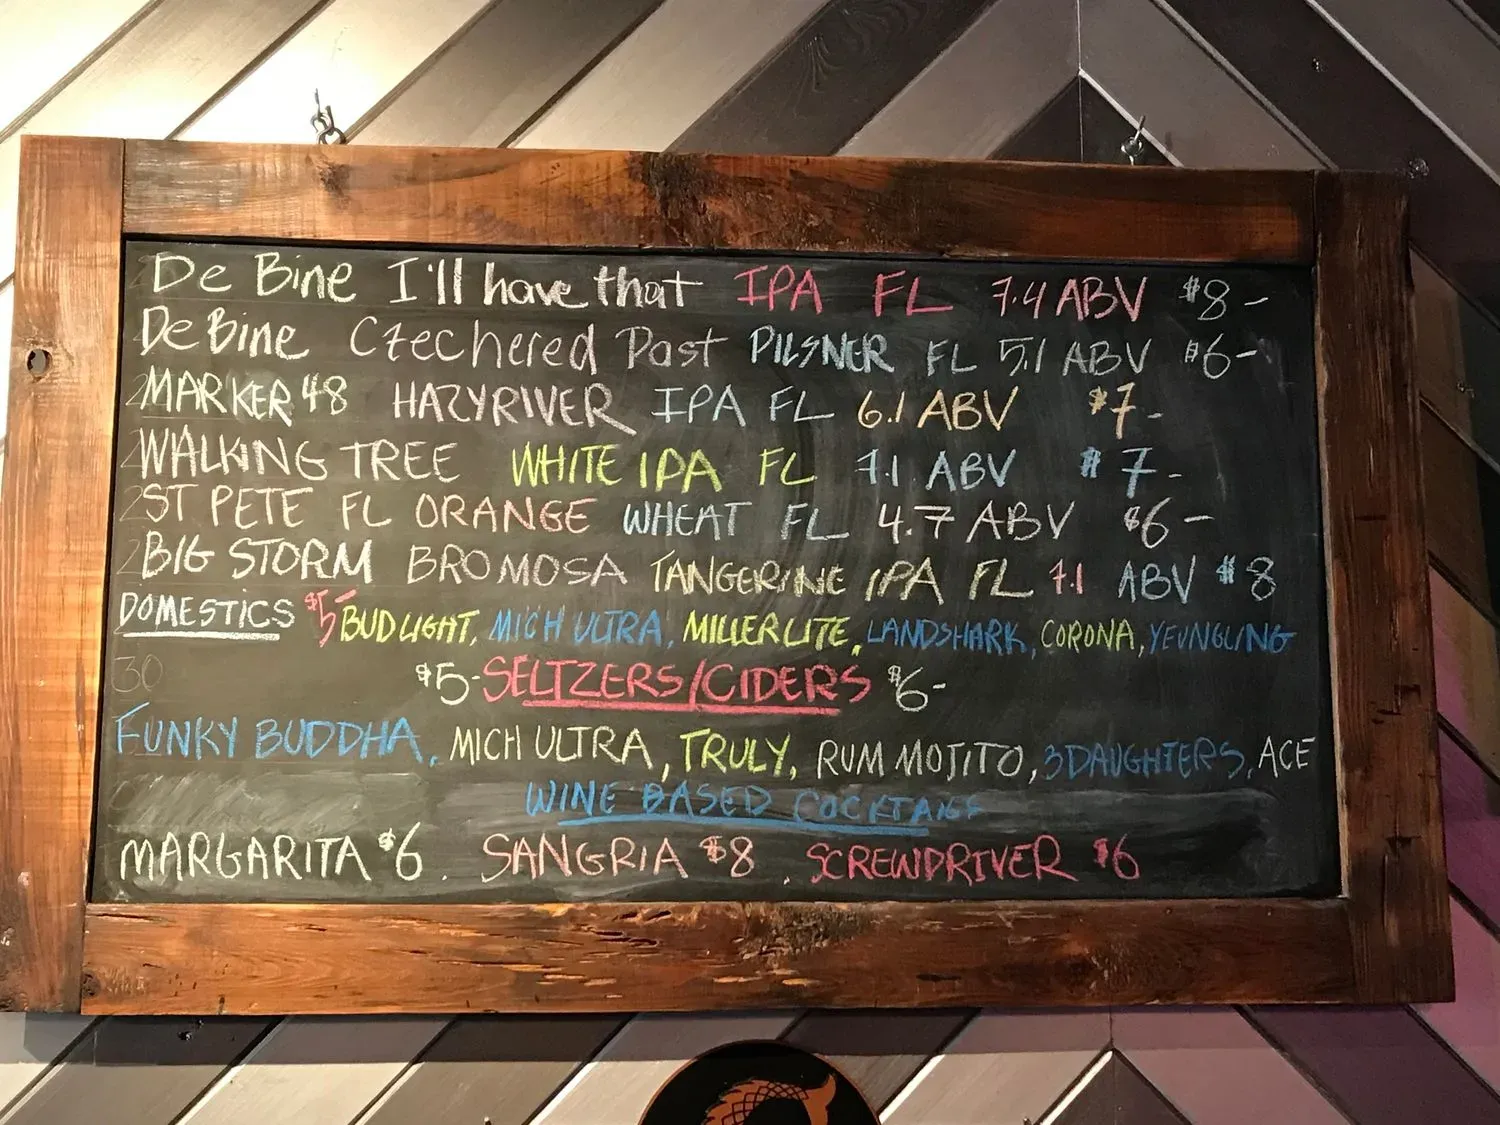 De Bine I'll have that IPA FL 7.4 ABV $8-
De Bine Czechered Past PILSNER FL 5.1 ABV $6-
MARKER 48 HAZY RIVER IPA FL 6.1 ABV $7-
WALKING TREE WHITE IPA FL 7.1 ABV $7-
ST PETE FL ORANGE WHEAT FL 4.7 ABV $6-
BIG STORM BROMOSA TANGERINE IPA FL 7.1 ABV $8
DOMESTICS $5- BUD LIGHT, MICH ULTRA, MILLER LITE, LANDSHARK, CORONA, YEUNGLING
30 $5- SELTZERS/CIDERS $6-
FUNKY BUDDHA, MICH ULTRA, TRULY, RUM MOJITO, 3 DAUGHTERS, ACE
WINE BASED COCKTAILS
MARGARITA $6. SANGRIA $8. SCREWDRIVER $6